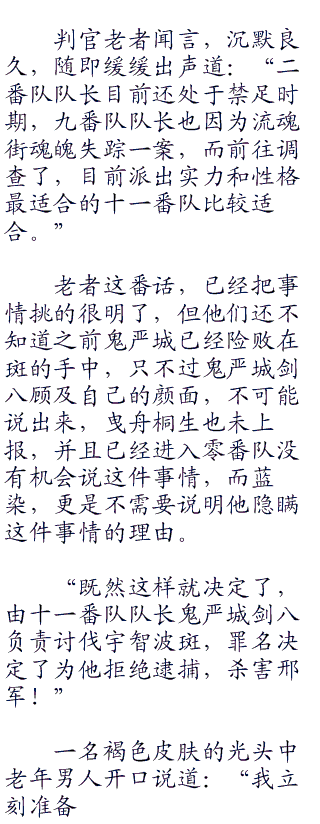 判官老者闻言，沉默良
久，随即缓缓出声道：“二
番队队长目前还处于禁足时
期，九番队队长也因为流魂
街魂魄失踪一案，而前往调
查了，目前派出实力和性格
最适合的十一番队比较适
合。”
老者这番话，已经把事
情挑的很明了，但他们还不
知道之前鬼严城已经险败在
斑的手中，只不过鬼严城剑
八顾及自己的颜面，不可能
说出来，曳舟桐生也未上
报，并且已经进入零番队没
有机会说这件事情，而蓝
染，更是不需要说明他隐瞒
这件事情的理由。
“既然这样就决定了，
由十一番队队长鬼严城剑八
负责讨伐宇智波斑，罪名决
定了为他拒绝逮捕，杀害邢
军！”
一名褐色皮肤的光头中
老年男人开口说道：“我立
刻准备